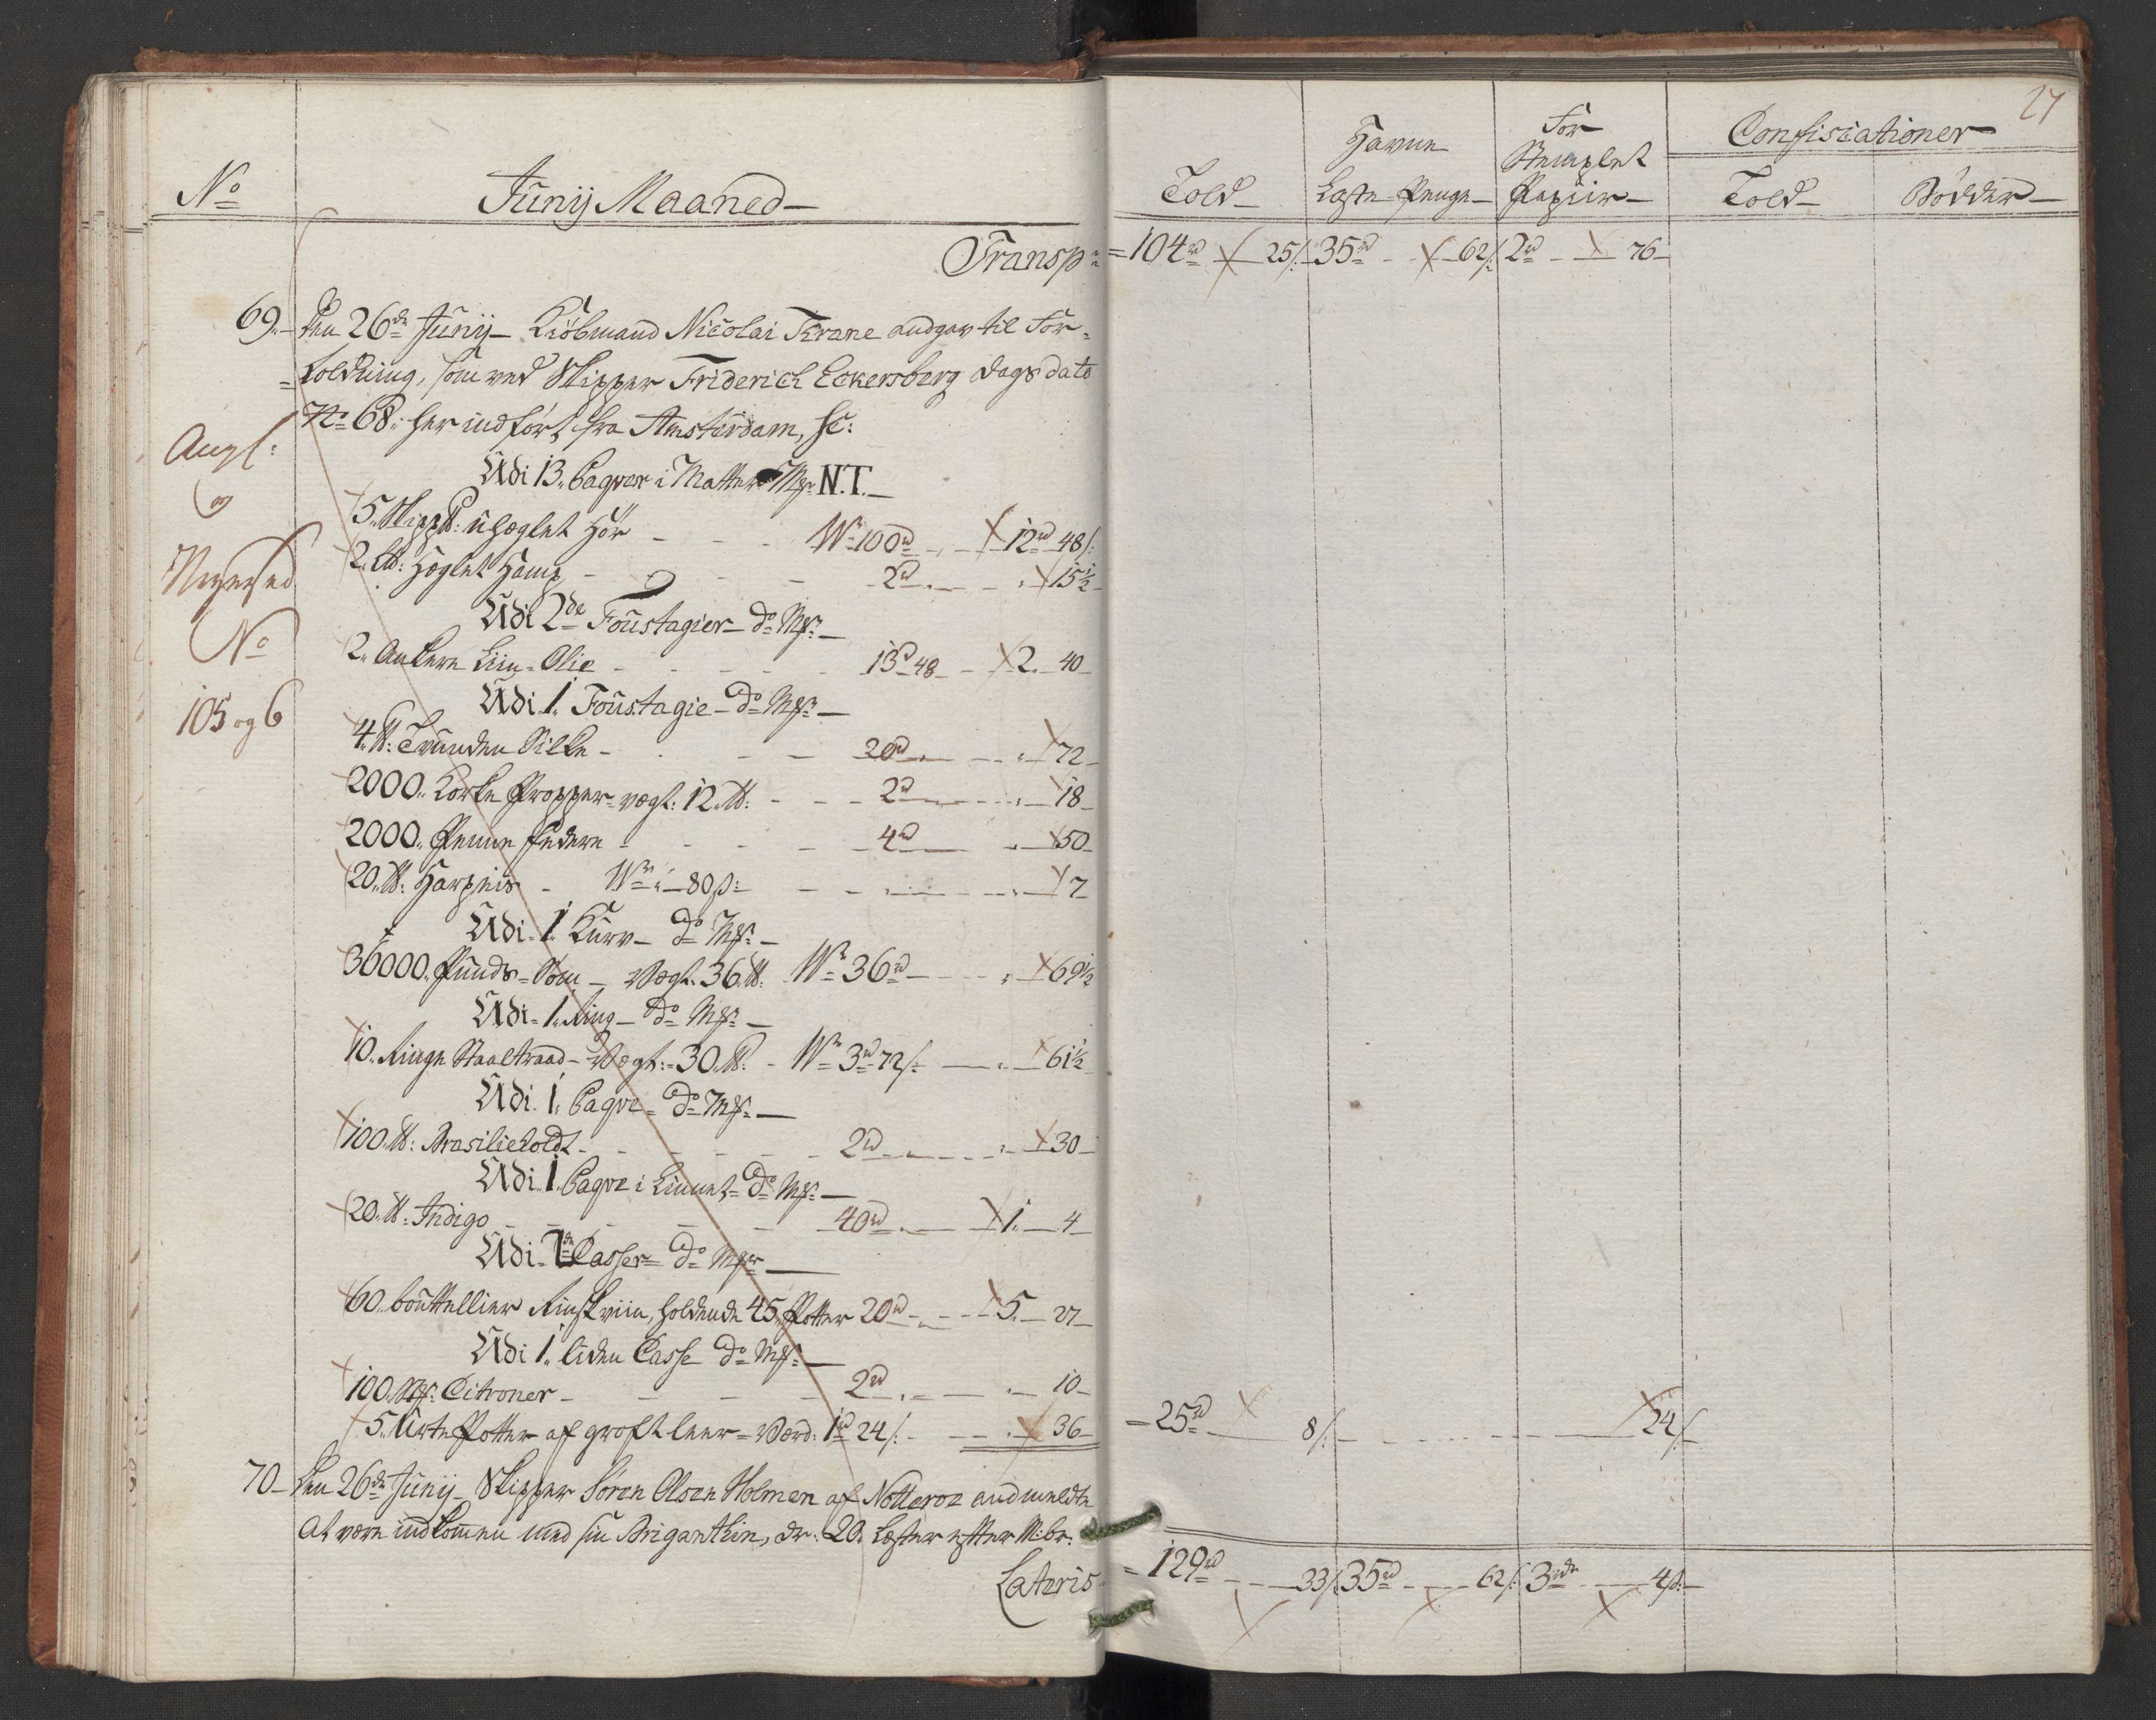 27
No
Junij Maaned
Told
Havne
Læste Penge
For
Stemplet
Papiir
Confisicationer
Told
Bödder
Transp: 104rd 25s 35rd 62s 2rd 76
69. Den 26de Junij Kiöbmand Nicolai Krane andgav til For-
toldning, som ved Skipper Friderich Eckersberg dags dato
No 68. her indfört fra Amsterdam, sc:
Angl:
og
No
105 og 6
Udi 13. Paqver i Matter Mk: N.T.
5. Skipp℔: uheglet Hör Wr 100rd 12rd 48s:
2. ℔: Heglet Hamp 2rd 15½
Udi 2de Foustagier do Mk:
2. Ankere Liin-Olie 13rd 48 2. 40
Udi 1. Foustagie do Mk:
4. ℔: Tvunden Silke 20rd 72
2000. Korke Propper vegt: 12. ℔: 2rd 18
2000. Penne fiedere 4rd 50
20. ℔: Harpeis Wr 80s: 7
Udi 1. Kurv do Mk:
36000. Punds-Söm Vegt. 36. ℔: Wr 36rd 69½
Udi 1. Ring do Mk:
10. Ringe Staaltraad Vegt: 30. ℔: Wr 3rd 72s: 61½
Udi 1. Paqve do Mk:
100. ℔: Brasilieholdt 2rd 30
Udi 1. Paqve i Linnet do Mk:
20. ℔: Indigo 40rd 1. 4
Udi 1de Casser do Mk:
60. bouttellier Rinskviin, holdende 45. Potter 20rd 5. 27
Udi 1. liden Casse do Mk:
100. Citroner 2rd 10
5. Urte Potter af groft leer Værd: 1rd 24s: 36
25rd 8s 24s
70 Den 26de Junij Skipper Sören Olsen Holmen af Nötteröe andmeldte
At være indkommen med sin Briganthin, dr: 20. Læster efter M:br:
Lateris 129rd 33s 35rd 62s: 3rdr 4s: